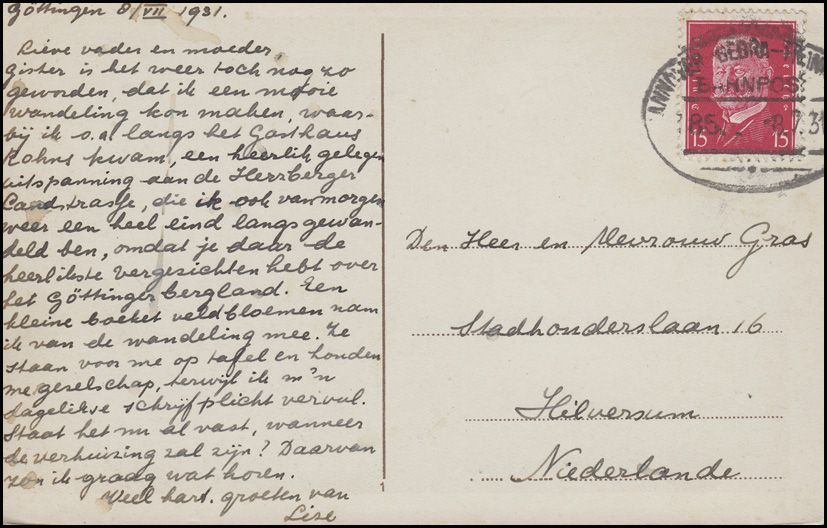 Göttingen 8/VII 1931.
Lieve vader en moeder,
Gister is het weer toch nog zo
geworden, dat ik een mooie
wandeling kon maken, waar-
bij ik o.a. langs het Gasthaus
Rohns kwam, een heerlik gelegen
uitspanning aan de Herzberger
Landstrasse, die ik ook vanmorgen
weer een heel eind langs gewan-
deld ben, omdat je daar de
heerlikste vergezichten hebt over
het Göttinger bergland. Een
kleine boeket veldbloemen nam
ik van de wandeling mee. Ze
staan voor me op tafel en houden
me gezelschap, terwijl ik m'n
dagelikse schrijfplicht vervul.
Staat het nu al vast, wanneer
de verhuizing zal zijn? Daarvan
zou ik graag wat horen.
Veel hart. groeten van
Lise
1
BEBRA-
BAHNPOST
8.7.31
15 15
Den Heer en Mevrouw Gras
Stadhouderslaan 16
Hilversum
Niederlande